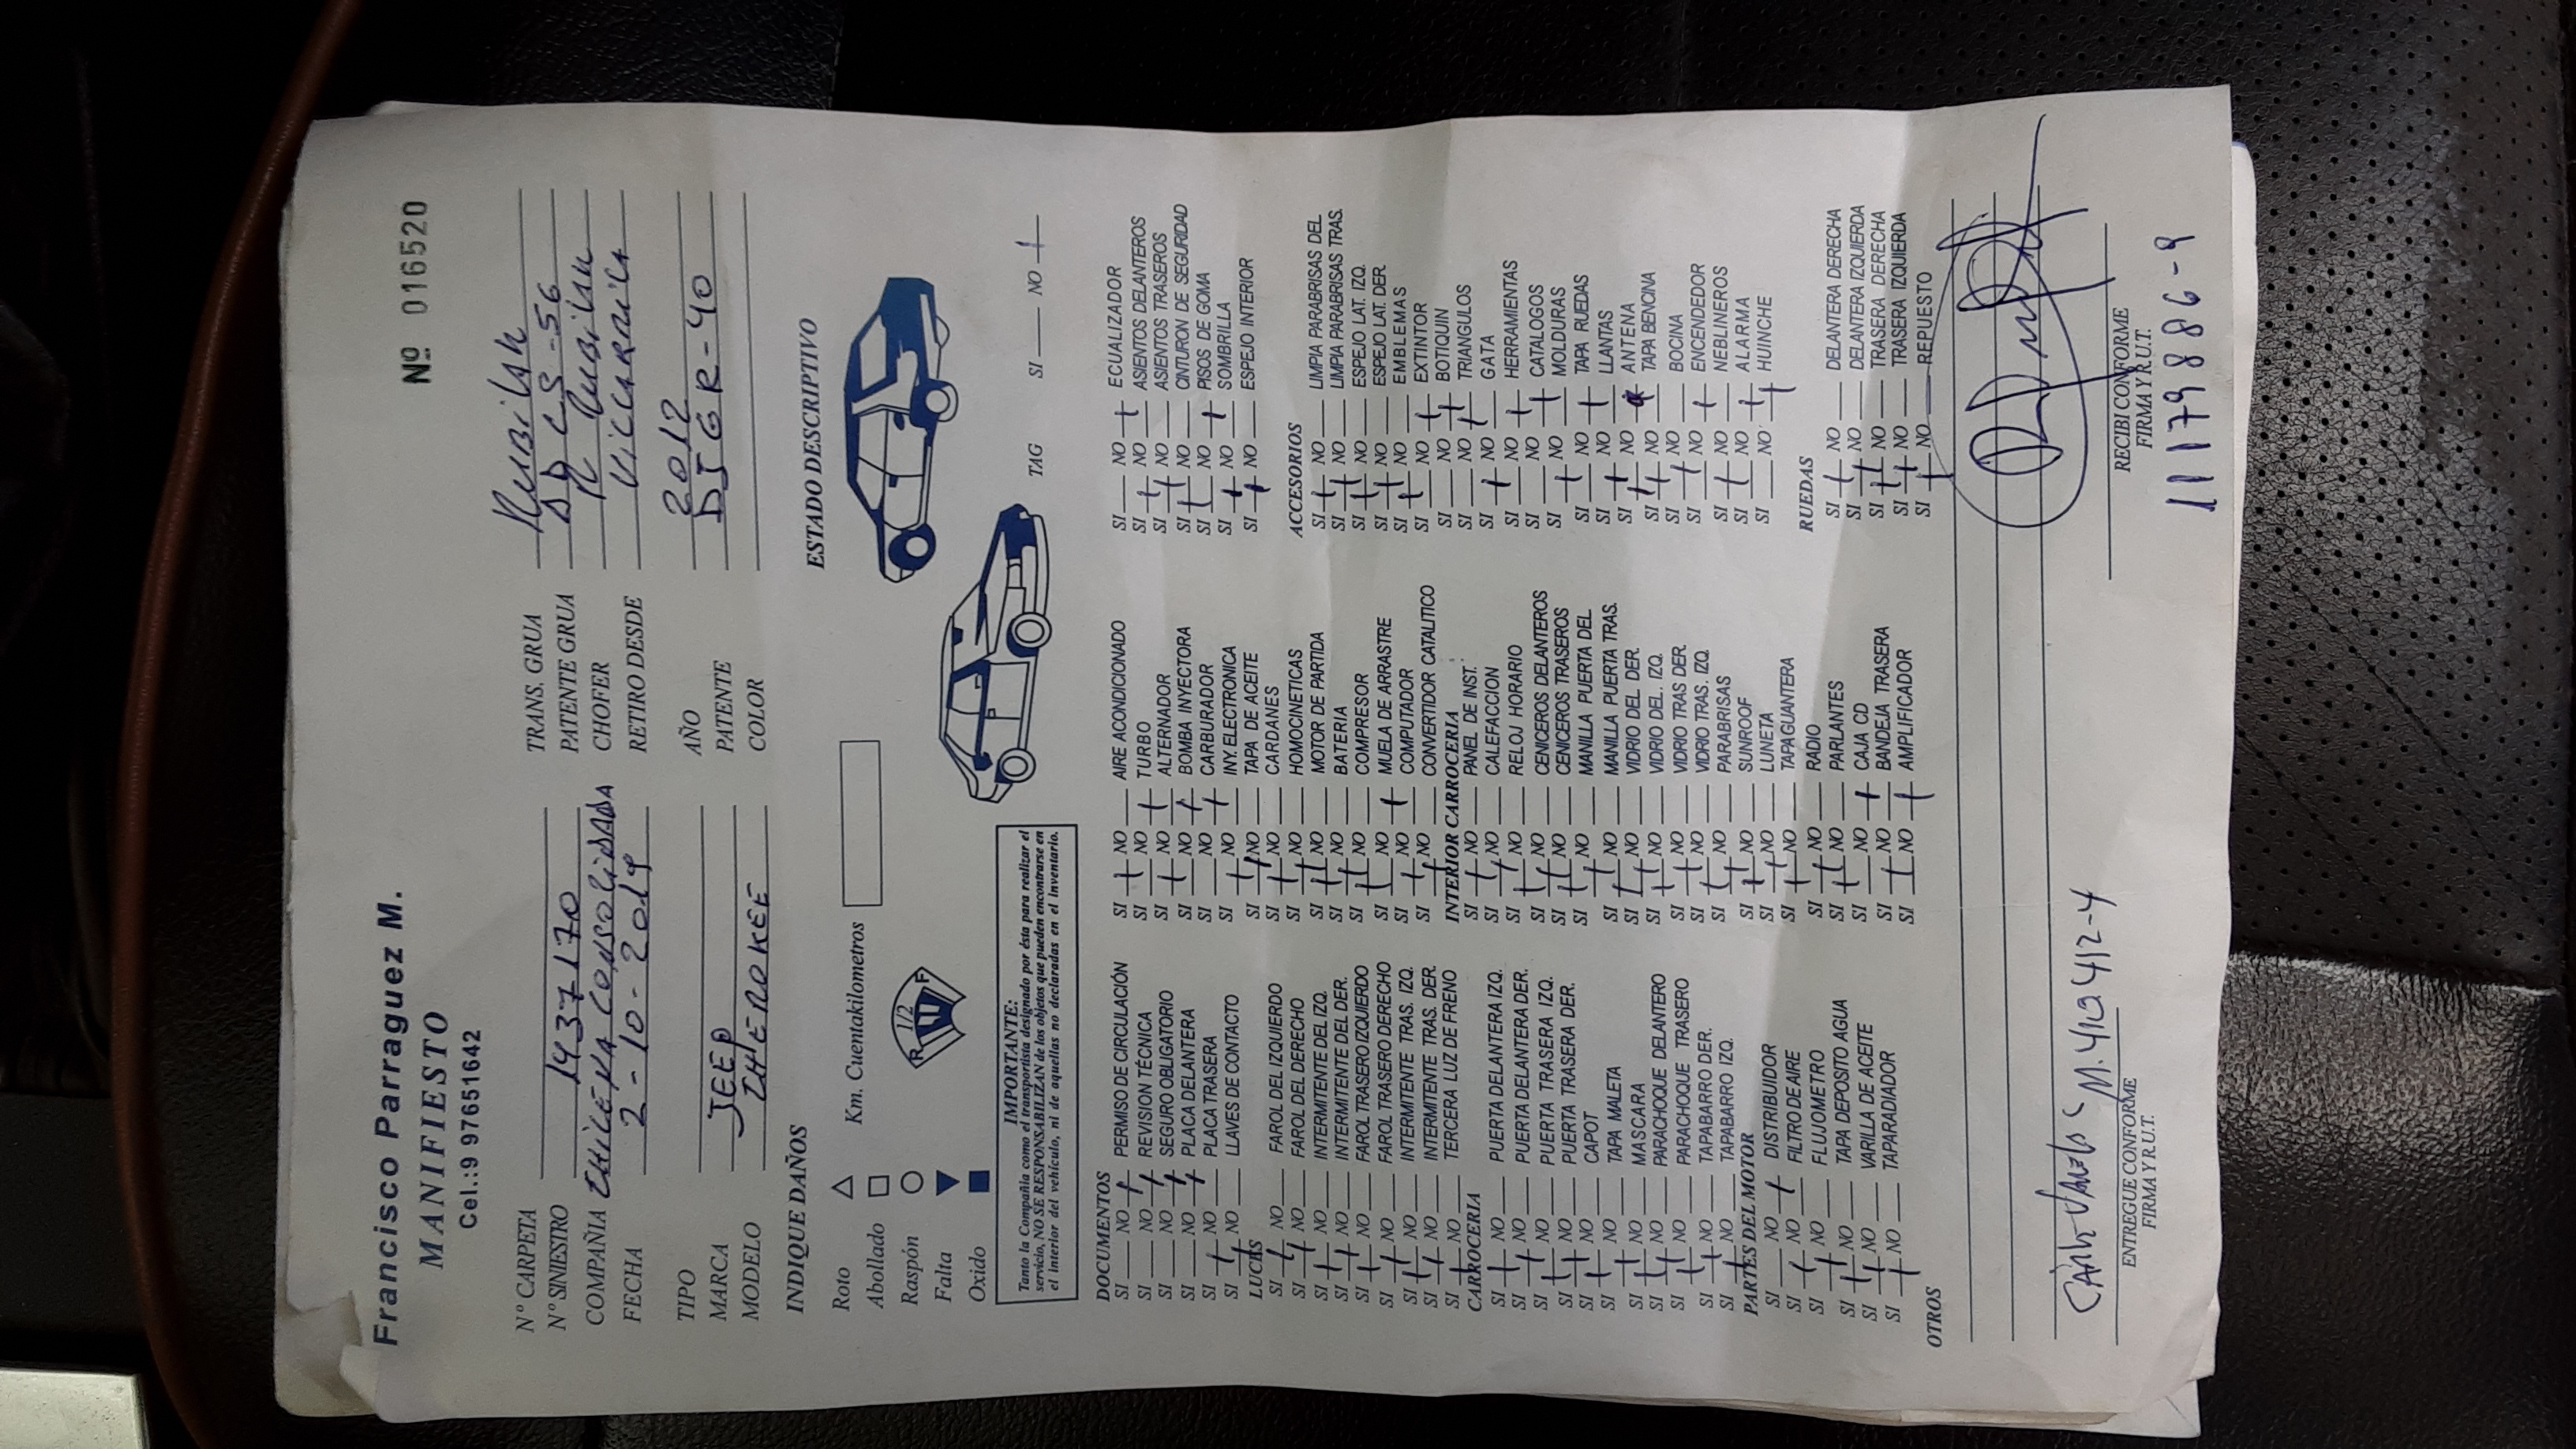 Francisco Parraguez M.
MANIFIESTO
Cel.:9 97651642
Nº 016520
N° CARPETA
N° SINIESTRO 1437170
COMPAÑIA CHILENA CONSOLIDADA
FECHA 2-10-2019
TIPO
MARCA JEEP
MODELO CHEROKEE
TRANS. GRUA Rubilar
PATENTE GRUA DDCS-56
CHOFER R Rubilar
RETIRO DESDE Villarrica
AÑO 2012
PATENTE DJGR-40
COLOR
INDIQUE DAÑOS
ESTADO DESCRIPTIVO
Roto
Abollado
Raspón
Falta
Oxido
Km. Cuentakilometros
R 1/2 F
IMPORTANTE:
Tanto la Compañia como el transportista designado por ésta para realizar el
servicio, NO SE RESPONSABILIZAN de los objetos que pueden encontrarse en
el interior del vehículo, ni de aquellas no declaradas en el Inventario.
TAG SI NO
DOCUMENTOS
SI NO PERMISO DE CIRCULACIÓN
SI NO REVISION TÉCNICA
SI NO SEGURO OBLIGATORIO
SI NO PLACA DELANTERA
SI NO PLACA TRASERA
SI NO LLAVES DE CONTACTO
LUCES
SI NO FAROL DEL IZQUIERDO
SI NO FAROL DEL DERECHO
SI NO INTERMITENTE DEL IZQ.
SI NO INTERMITENTE DEL DER.
SI NO FAROL TRASERO IZQUIERDO
SI NO FAROL TRASERO DERECHO
SI NO INTERMITENTE TRAS. IZQ.
SI NO INTERMITENTE TRAS. DER.
SI NO TERCERA LUZ DE FRENO
CARROCERIA
SI NO PUERTA DELANTERA IZQ.
SI NO PUERTA DELANTERA DER.
SI NO PUERTA TRASERA IZQ.
SI NO PUERTA TRASERA DER.
SI NO CAPOT
SI NO TAPA MALETA
SI NO MASCARA
SI NO PARACHOQUE DELANTERO
SI NO PARACHOQUE TRASERO
SI NO TAPABARRO DER.
SI NO TAPABARRO IZQ.
PARTES DEL MOTOR
SI NO DISTRIBUIDOR
SI NO FILTRO DE AIRE
SI NO FLUJOMETRO
SI NO TAPA DEPOSITO AGUA
SI NO VARILLA DE ACEITE
SI NO TAPARADIADOR
SI NO AIRE ACONDICIONADO
SI NO TURBO
SI NO ALTERNADOR
SI NO BOMBA INYECTORA
SI NO CARBURADOR
SI NO INY. ELECTRONICA
SI NO TAPA DE ACEITE
SI NO CARDANES
SI NO HOMOCINETICAS
SI NO MOTOR DE PARTIDA
SI NO BATERIA
SI NO COMPRESOR
SI NO MUELA DE ARRASTRE
SI NO COMPUTADOR
SI NO CONVERTIDOR CATALITICO
INTERIOR CARROCERIA
SI NO PANEL DE INST.
SI NO CALEFACCION
SI NO RELOJ HORARIO
SI NO CENICEROS DELANTEROS
SI NO CENICEROS TRASEROS
SI NO MANILLA PUERTA DEL.
SI NO MANILLA PUERTA TRAS.
SI NO VIDRIO DEL. DER.
SI NO VIDRIO DEL. IZQ.
SI NO VIDRIO TRAS DER.
SI NO VIDRIO TRAS. IZQ.
SI NO PARABRISAS
SI NO SUNROOF
SI NO LUNETA
SI NO TAPAGUANTERA
SI NO RADIO
SI NO PARLANTES
SI NO CAJA CD
SI NO BANDEJA TRASERA
SI NO AMPLIFICADOR
SI NO ECUALIZADOR
SI NO ASIENTOS DELANTEROS
SI NO ASIENTOS TRASEROS
SI NO CINTURON DE SEGURIDAD
SI NO PISOS DE GOMA
SI NO SOMBRILLA
SI NO ESPEJO INTERIOR
ACCESORIOS
SI NO LIMPIA PARABRISAS DEL
SI NO LIMPIA PARABRISAS TRAS.
SI NO ESPEJO LAT. IZQ.
SI NO ESPEJO LAT. DER.
SI NO EMBLEMAS
SI NO EXTINTOR
SI NO BOTIQUIN
SI NO TRIANGULOS
SI NO GATA
SI NO HERRAMIENTAS
SI NO CATALOGOS
SI NO MOLDURAS
SI NO TAPA RUEDAS
SI NO LLANTAS
SI NO ANTENA
SI NO TAPA BENCINA
SI NO BOCINA
SI NO ENCENDEDOR
SI NO NEBLINEROS
SI NO ALARMA
SI NO HUINCHE
RUEDAS
SI NO DELANTERA DERECHA
SI NO DELANTERA IZQUIERDA
SI NO TRASERA DERECHA
SI NO TRASERA IZQUIERDA
SI NO REPUESTO
OTROS
ENTREGUE CONFORME
FIRMA Y R.U.T.
RECIBI CONFORME
FIRMA Y R.U.T.
11179886-9